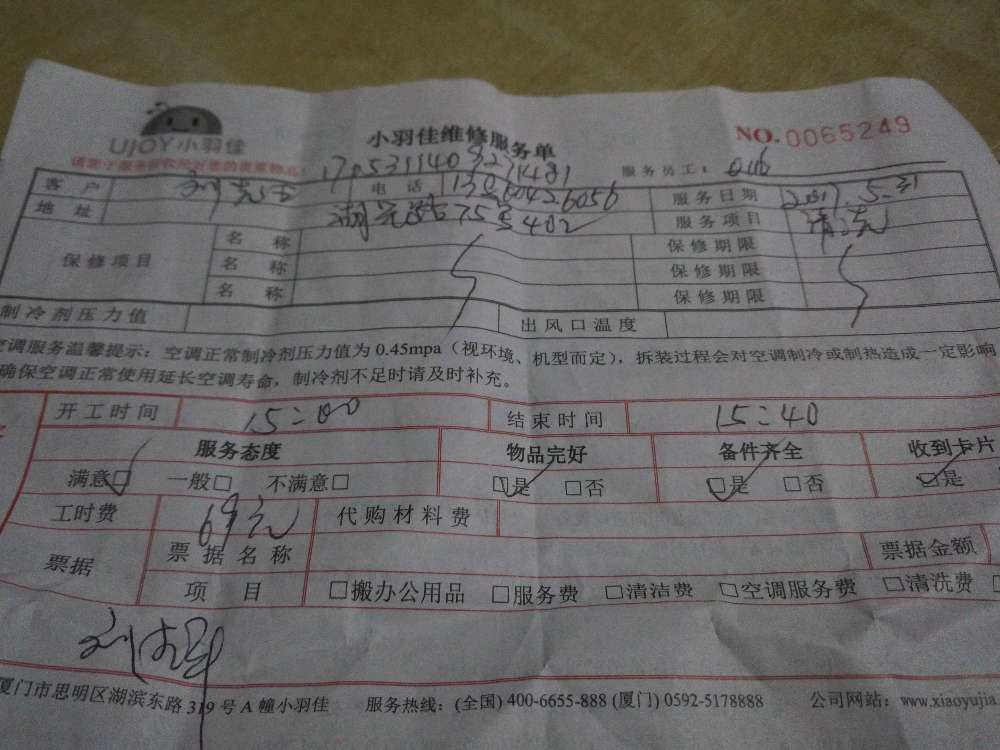 UJOY小羽佳
小羽佳维修服务单
NO.0065249
1705311403271481
服务员工：046
客户 电话 13060426056 服务日期 2017.5.31
地址 755 402 服务项目 清洗
保修项目 名称 保修期限
名称 保修期限
名称 保修期限
制冷剂压力值 出风口温度
空调服务温馨提示：空调正常制冷剂压力值为0.45mpa（视环境、机型而定），拆装过程会对空调制冷或制热造成一定影响
确保空调正常使用延长空调寿命，制冷剂不足时请及时补充。
开工时间 15:00 结束时间 15:40
服务态度 物品完好 备件齐全 收到卡片
满意□ 一般□ 不满意□ □是 □否 □是 □否 □是
工时费 69元 代购材料费
票据 票据名称 票据金额
项目 □搬办公用品 □服务费 □清洁费 □空调服务费 □清洗费
厦门市思明区湖滨东路319号A幢小羽佳 服务热线：(全国) 400-6655-888 (厦门) 0592-5178888 公司网站：www.xiaoyujia.